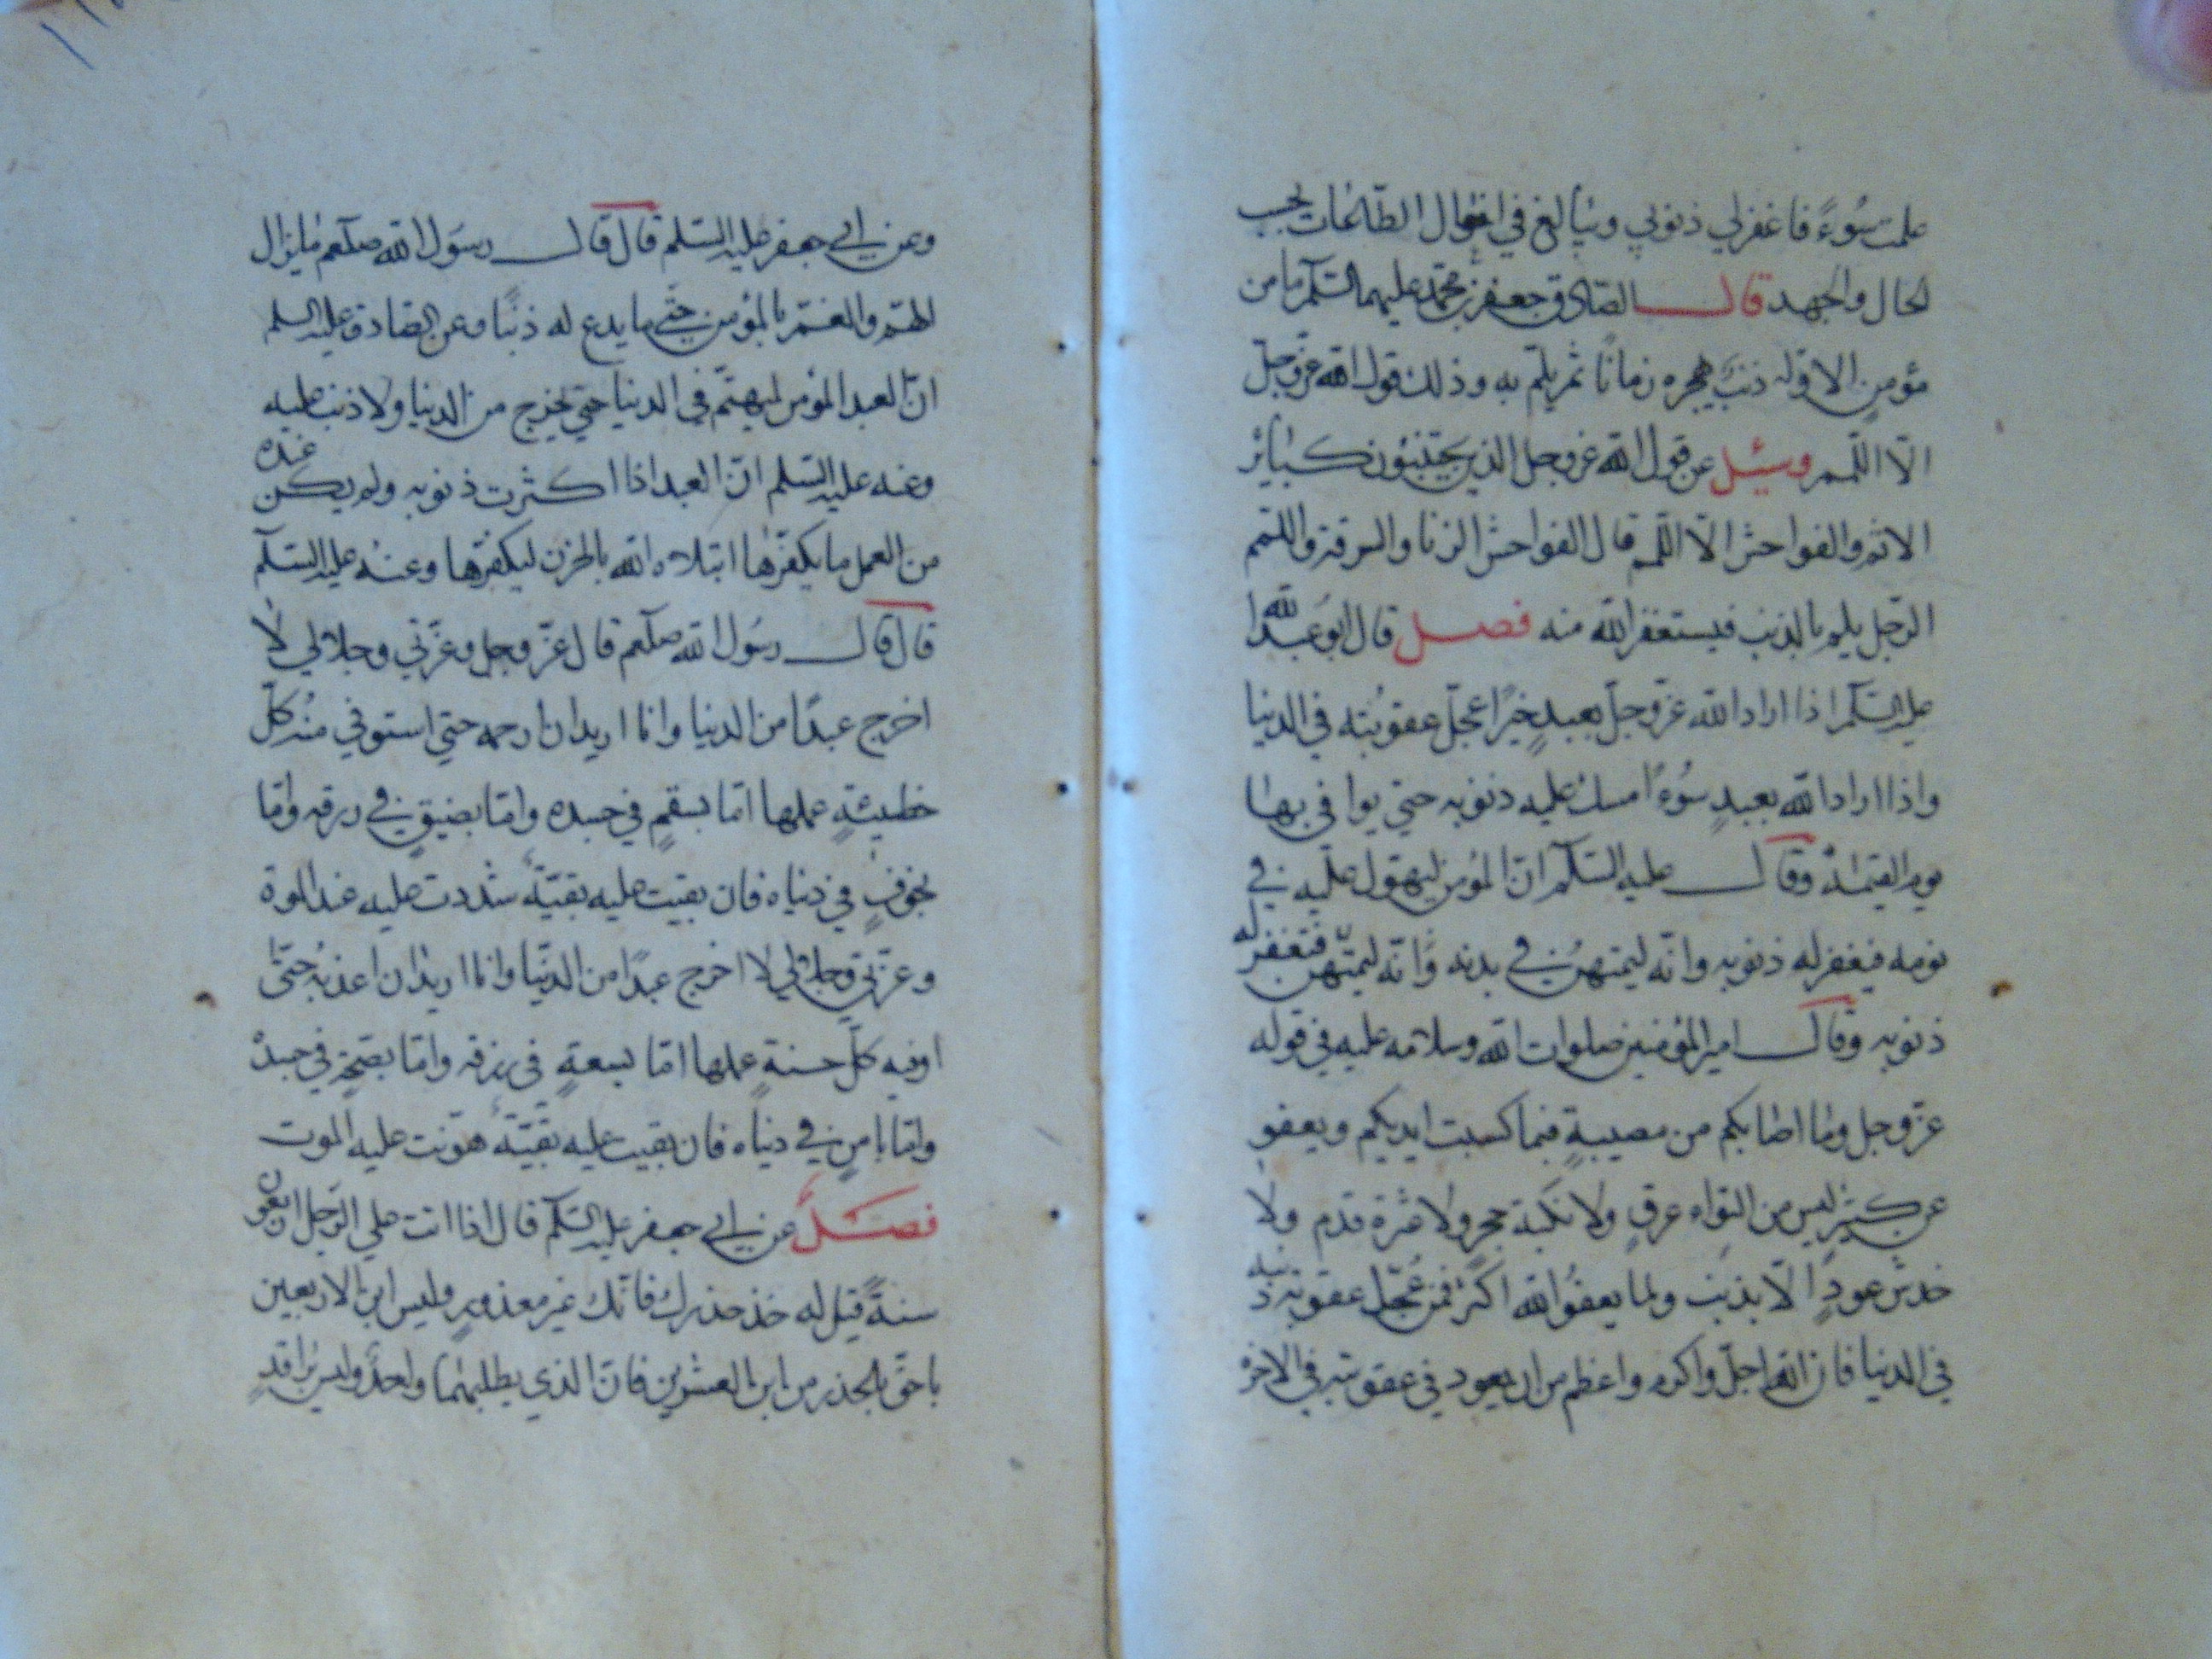 علمت سُوءً فاغفرلي ذنوبي ويبالغ في افعال الطاعات بحب
الحال والجهد قال الصادق جعفر بن محمد عليهما السلم ما من
مؤمن الا وله ذنب يهجره زمانًا ثم يلمّ به وذلك قول الله عزّ وجلّ
الّا اللّمم وسئل عن قول الله عزّ وجل الذين يجتنبون كبائر
الاثم والفواحش الّا اللّمم قال الفواحش الزنا والسرقة واللمم
الرّجل يلم بالذنب فيستغفر الله منه فصل قال ابو عبد الله
عليه السّلم اذا اراد الله عزّ وجلّ بعبدٍ خيرًا عجّل عقوبته في الدنيا
واذا اراد الله بعبدٍ سُوءً امسك عليه ذنوبه حتي يوافي بها
يوم القيمة وقال عليه السّلم انّ المؤمن ليهول عليه في
نومه فيغفر له ذنوبه وانّه ليمتهن في بدنه وانّه ليمتهن فتغفر له
ذنوبه وقال امير المؤمنين صلوات الله وسلامه عليه في قوله
عزّ وجل وما اصابكم من مصيبةٍ فبما كسبت ايديكم ويعفو
عن كثير ليس من التواء عرقٍ ولا نكبة حجرٍ ولا عثرة قدم ولا
خدش عودٍ الّا بذنب ولما يعفوُ الله اكثر فمن عُجّل عقوبة ذنبه
في الدنيا فان الله اجلّ واكرم واعظم من ان يعود في عقوبته في الاخره
وعن ابي جعفر عليه السّلم قال قال رسول الله صلعم ما يزال
الهمّ والغمّ بالمؤمن حتّي ما يدع له ذنبًا وعن الصادق عليه السلم
انّ العبد المؤمن ليهتمّ في الدنيا حتي يخرج من الدنيا ولا ذنب عليه
وعنه عليه السّلم انّ العبد اذا اكثرت ذنوبه ولم يكن عنده
من العمل ما يكفّرها ابتلاه الله بالحزن ليكفّرها وعنه عليه السّلم
قال قال رسُول الله صلعم قال عزّ وجل وعزّتي وجلالي لا
اخرج عبدًا من الدنيا وانا اريد ان ارحمه حتي استوفي منه كلّ
خطيئةٍ عملها امّا بسقمٍ في جسده وامّا بضيقٍ في رزقه وامّا
بخوفٍ في دنياه فان بقيت عليه بقيّة شدّدت عليه عند الموة
وعزّتي وجلالي لا اخرج عبدًا من الدنيا وانا اريد ان اعذبه حتّي
اوفيه كلّ حسنةٍ عملها امّا بسعةٍ في رزقه وامّا بصحّةٍ في جسده
وامّا بامنٍ في دنياه فان بقيت عليه بقيّة هوّنت عليه الموت
فصل عن ابي جعفر عليه السّلم قال اذا اتت علي الرّجل اربعون
سنةً قيل له خذ حذرك فانّك غير معذورٍ وليس ابن الاربعين
باحقّ بالحذر من ابن العشرين فانّ الذي يطلبهما واحدٌ وليس براقدٍ